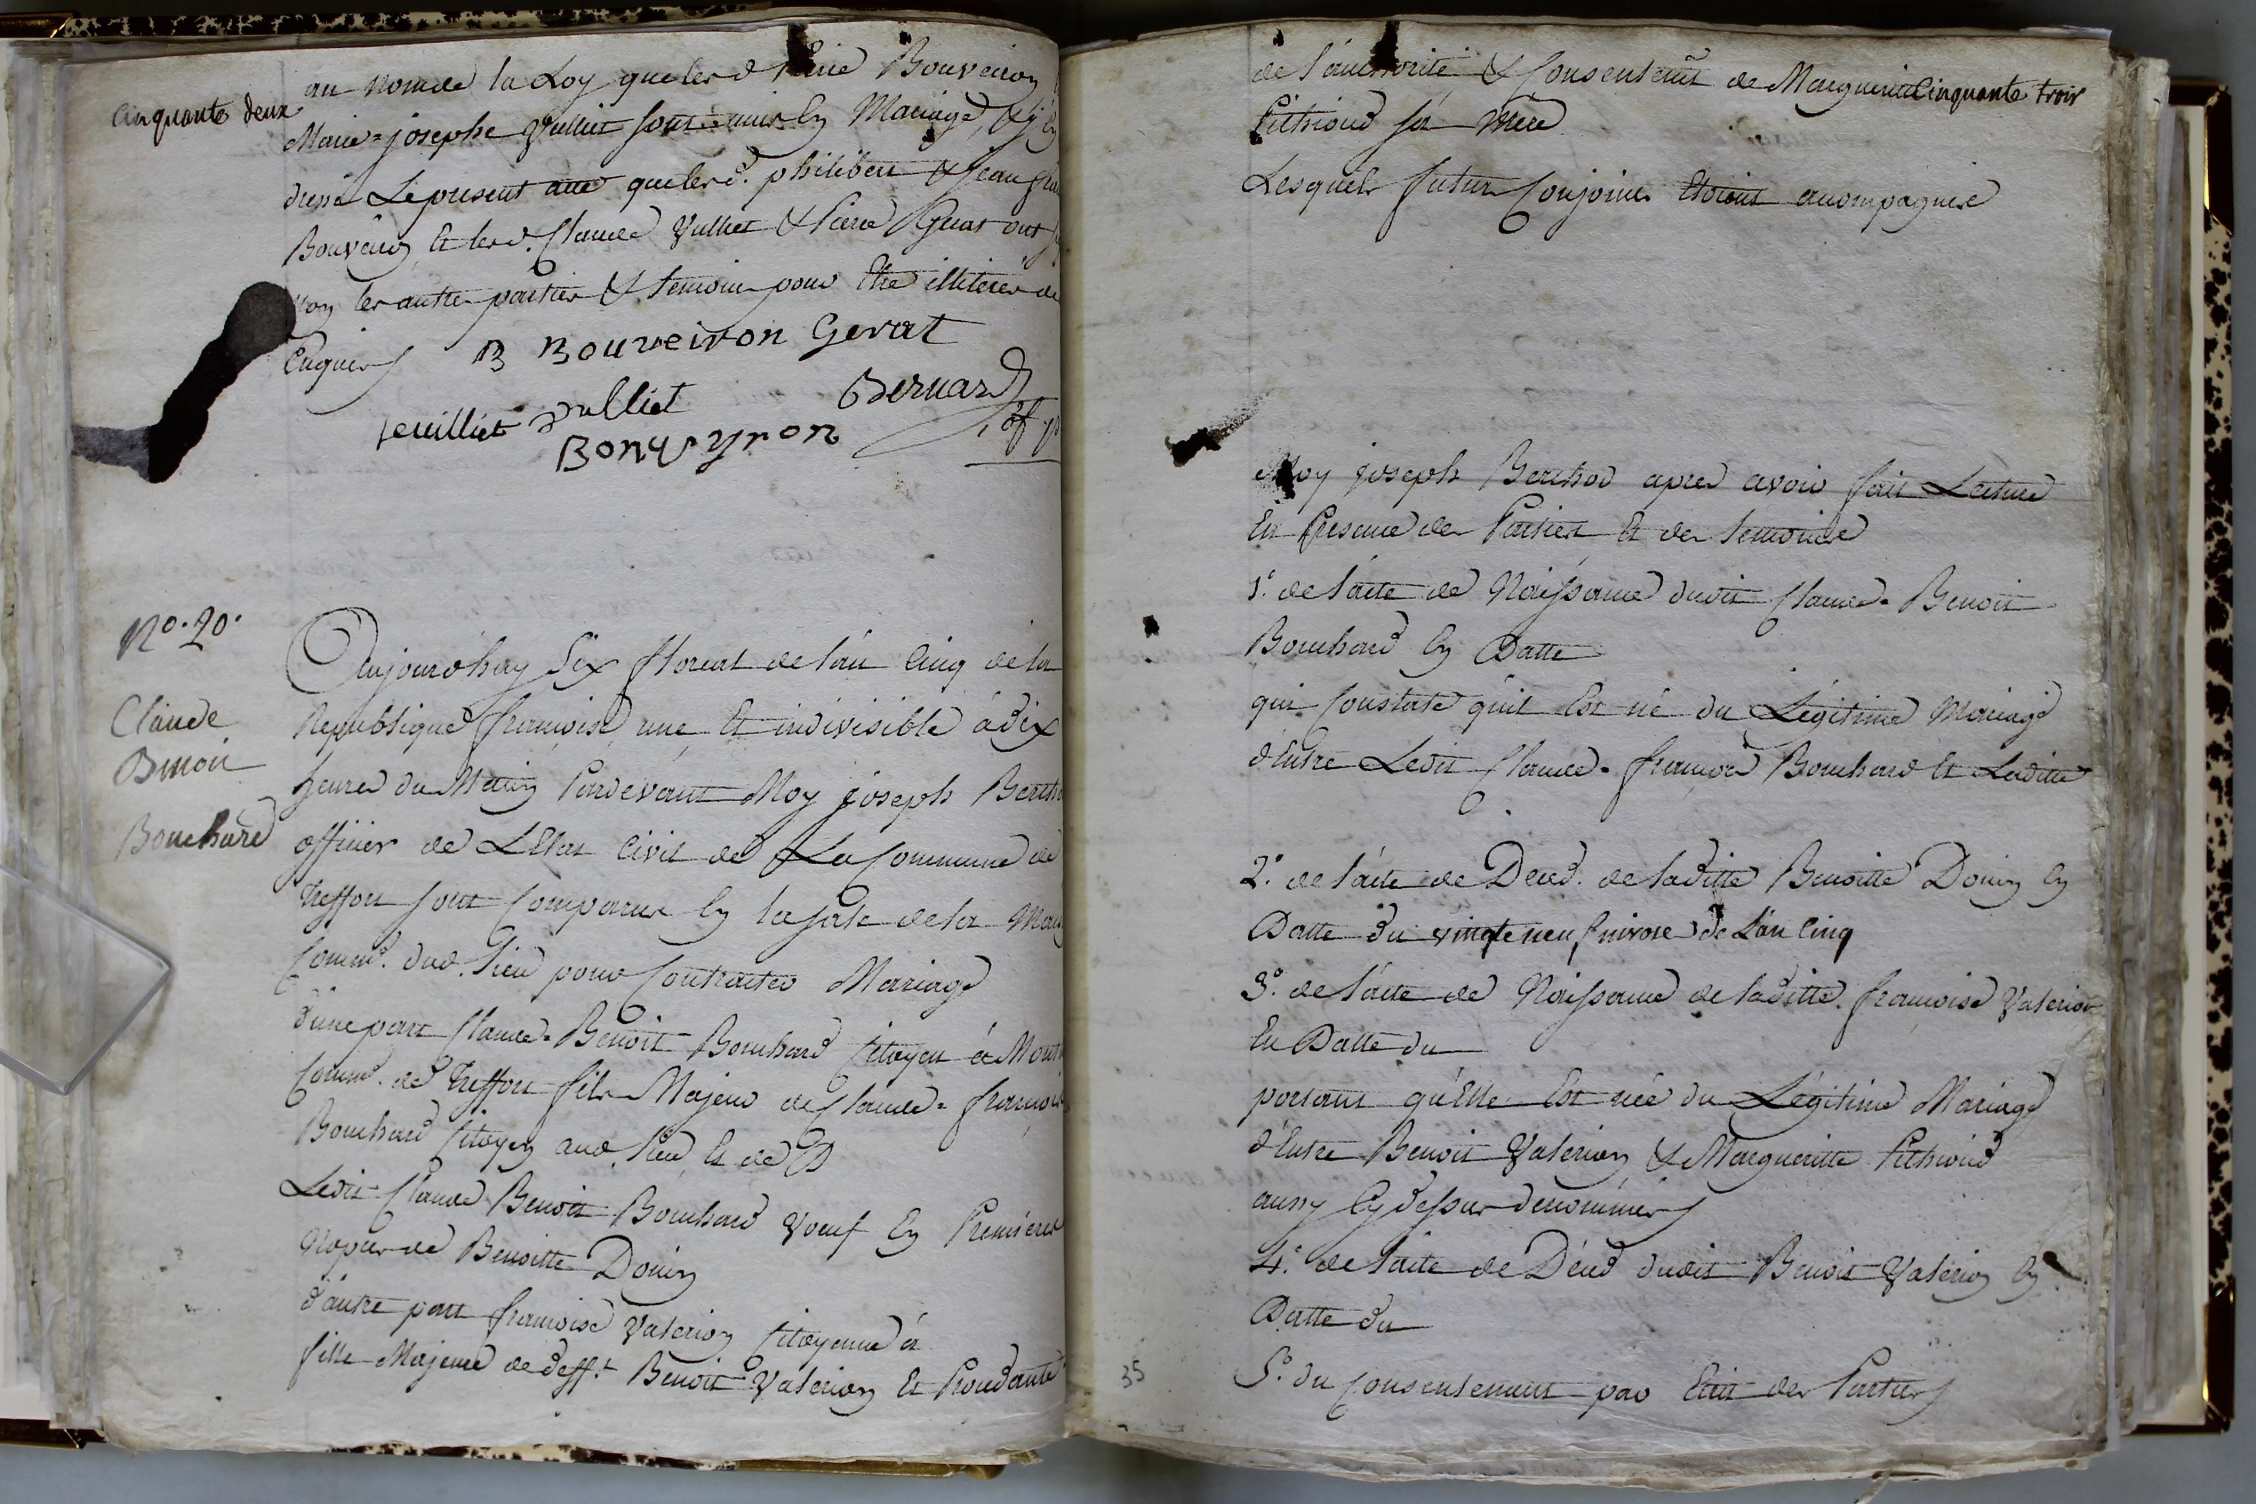 cinquante deux
au nom de la Loy que les d Pierre Bouveiron
Marie=josephe Vulliet sont unis en Mariage, & j'ay
dressé Le present acte que les d. philibert & jean fra
Bouveiron Et les d. Claude Vulliet & Pierre Guat ont
non les autre parties & temoins pour Etre illiterés de
Enquis
B Bouveiron Gerat
vulliet Bernard
Bonveyron
No. 20.
Claude
Benoit
Bouchard
Aujourdhuy Six floreal de l'an Cinq de la
Republique françoise, une Et indivisible à dix
heures du Matin Pardevant Moy joseph Bertho
officier de L'Etat Civil de La Commune de
Treffort sont Comparus En la sale de la Mais
Comm.e dud. lieu pour Contracter Mariage
d'une part Claude=Benoit Bouchard Citoyen à Mont
Comm.e de Treffort fils Majeur de Claude=françois
Bouchard Citoyen aud. lieu, Et de
Ledit Claude Benoit Bouchard Voeuf En Premieres
Nopces de Benoitte Douin
d'autre part francoise Valerion Citoyenne à
fille Majeure de deff.t Benoit Valerion Et Procedante
de l'authorité & Consentem.t de Marguerite
Cinquante trois
Pithioud sa Mere
Lesquels futurs Conjoints Etoient accompagnés
Moy joseph Berthod apres avoir fait Lecture
En Presence des Parties Et des temoins
1.° de l'acte de Naissance dudit Claude=Benoit
Bouchard En Datte
qui Constate quil Est né du Légitime Mariage
d'Entre Ledit Claude=françois Bouchard Et Laditte
2.° de l'acte de Deced. de laditte Benoitte Douin En
Datte du vingte neuf nivose de L'an Cinq
3.° de l'acte de Naissance de laditte francoise Valerion
En Datte du
portant qu'Elle Est née du Légitime Mariage
d'Entre Benoit Valerion & Margueritte Pithioud
aussy Cy dessus denommés
4.° de l'acte de Déced dudit Benoit Valerion En
Datte du
5.° du Consentement par Ecrit des Parties
35